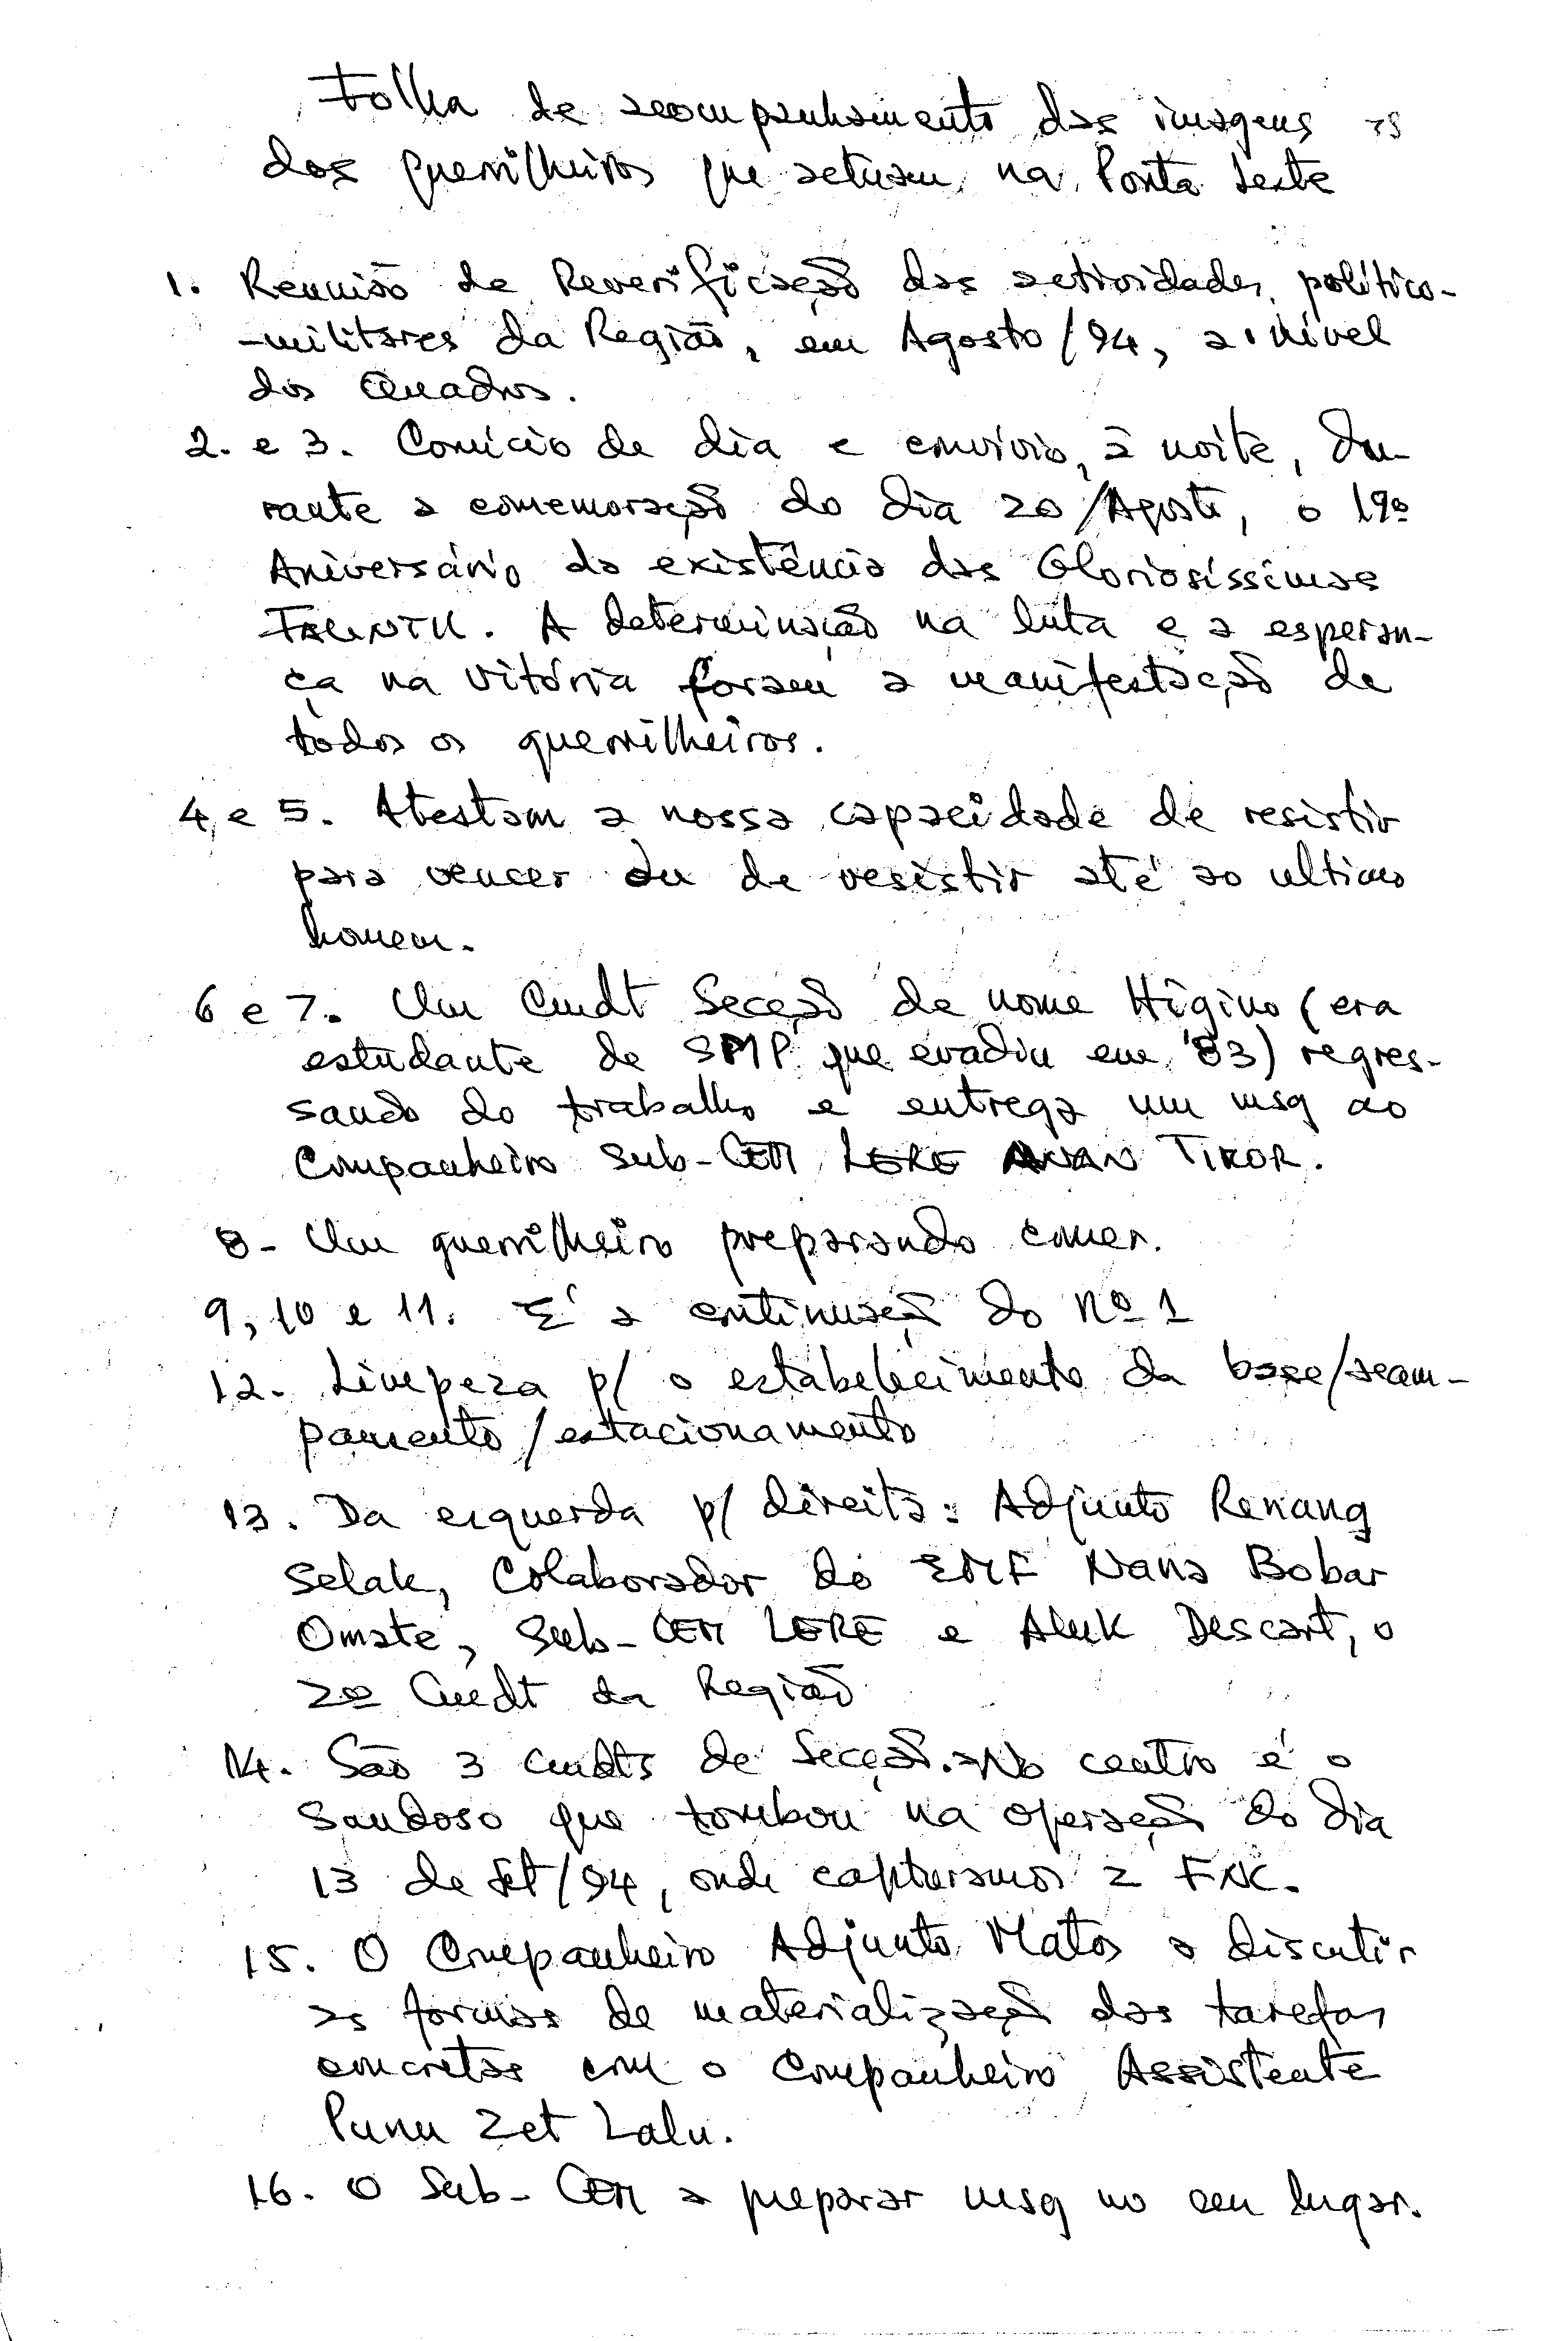 Folha de acompanhamento das imagens
dos guerrilheiros que actuam na Ponta Leste
1. Reunião de Reverificação das actividades político-
-militares da Região, em Agosto/94, a nível
dos Quadros.
2. e 3. Comício de dia e convívio, à noite, du-
rante a comemoração do dia 20/Agosto, o 19º
Aniversário da existência das Gloriosíssimas
FALINTIL. A determinação na luta e a esperan-
ça na vitória foram a manifestação de
todos os guerrilheiros.
4 e 5. Atestam a nossa capacidade de resistir
para vencer ou de resistir até ao ultimo
homem.
6 e 7. Um Cmdt Secção de nome Higino (era
estudante de SMP que evadiu em '83) regres-
sando do trabalho e entrega um msg ao
Companheiro Sub-CEM LERE ANAN TIMOR.
8- Um guerrilheiro preparando comer.
9, 10 e 11. É a continuação do Nº 1
12. Limpeza p/ o estabelecimento da base/acam-
pamento/estacionamento
13. Da esquerda p/ direita: Adjunto Renang
Selak, Colaborador do EMF Nana Bobar
Omate, Sub-CEM LERE e Aluk Descart, o
2º Cmdt da Região
14. São 3 Cmdts de Secção. No centro é o
Saudoso que tombou na operação do dia
13 de Set/94, onde capturamos 2 FNC.
15. O Companheiro Adjunto Matos a discutir
as formas de materialização das tarefas
concretas com o Companheiro Assistente
Punu Zet Lalu.
16. O Sub-CEM a preparar msg no seu lugar.